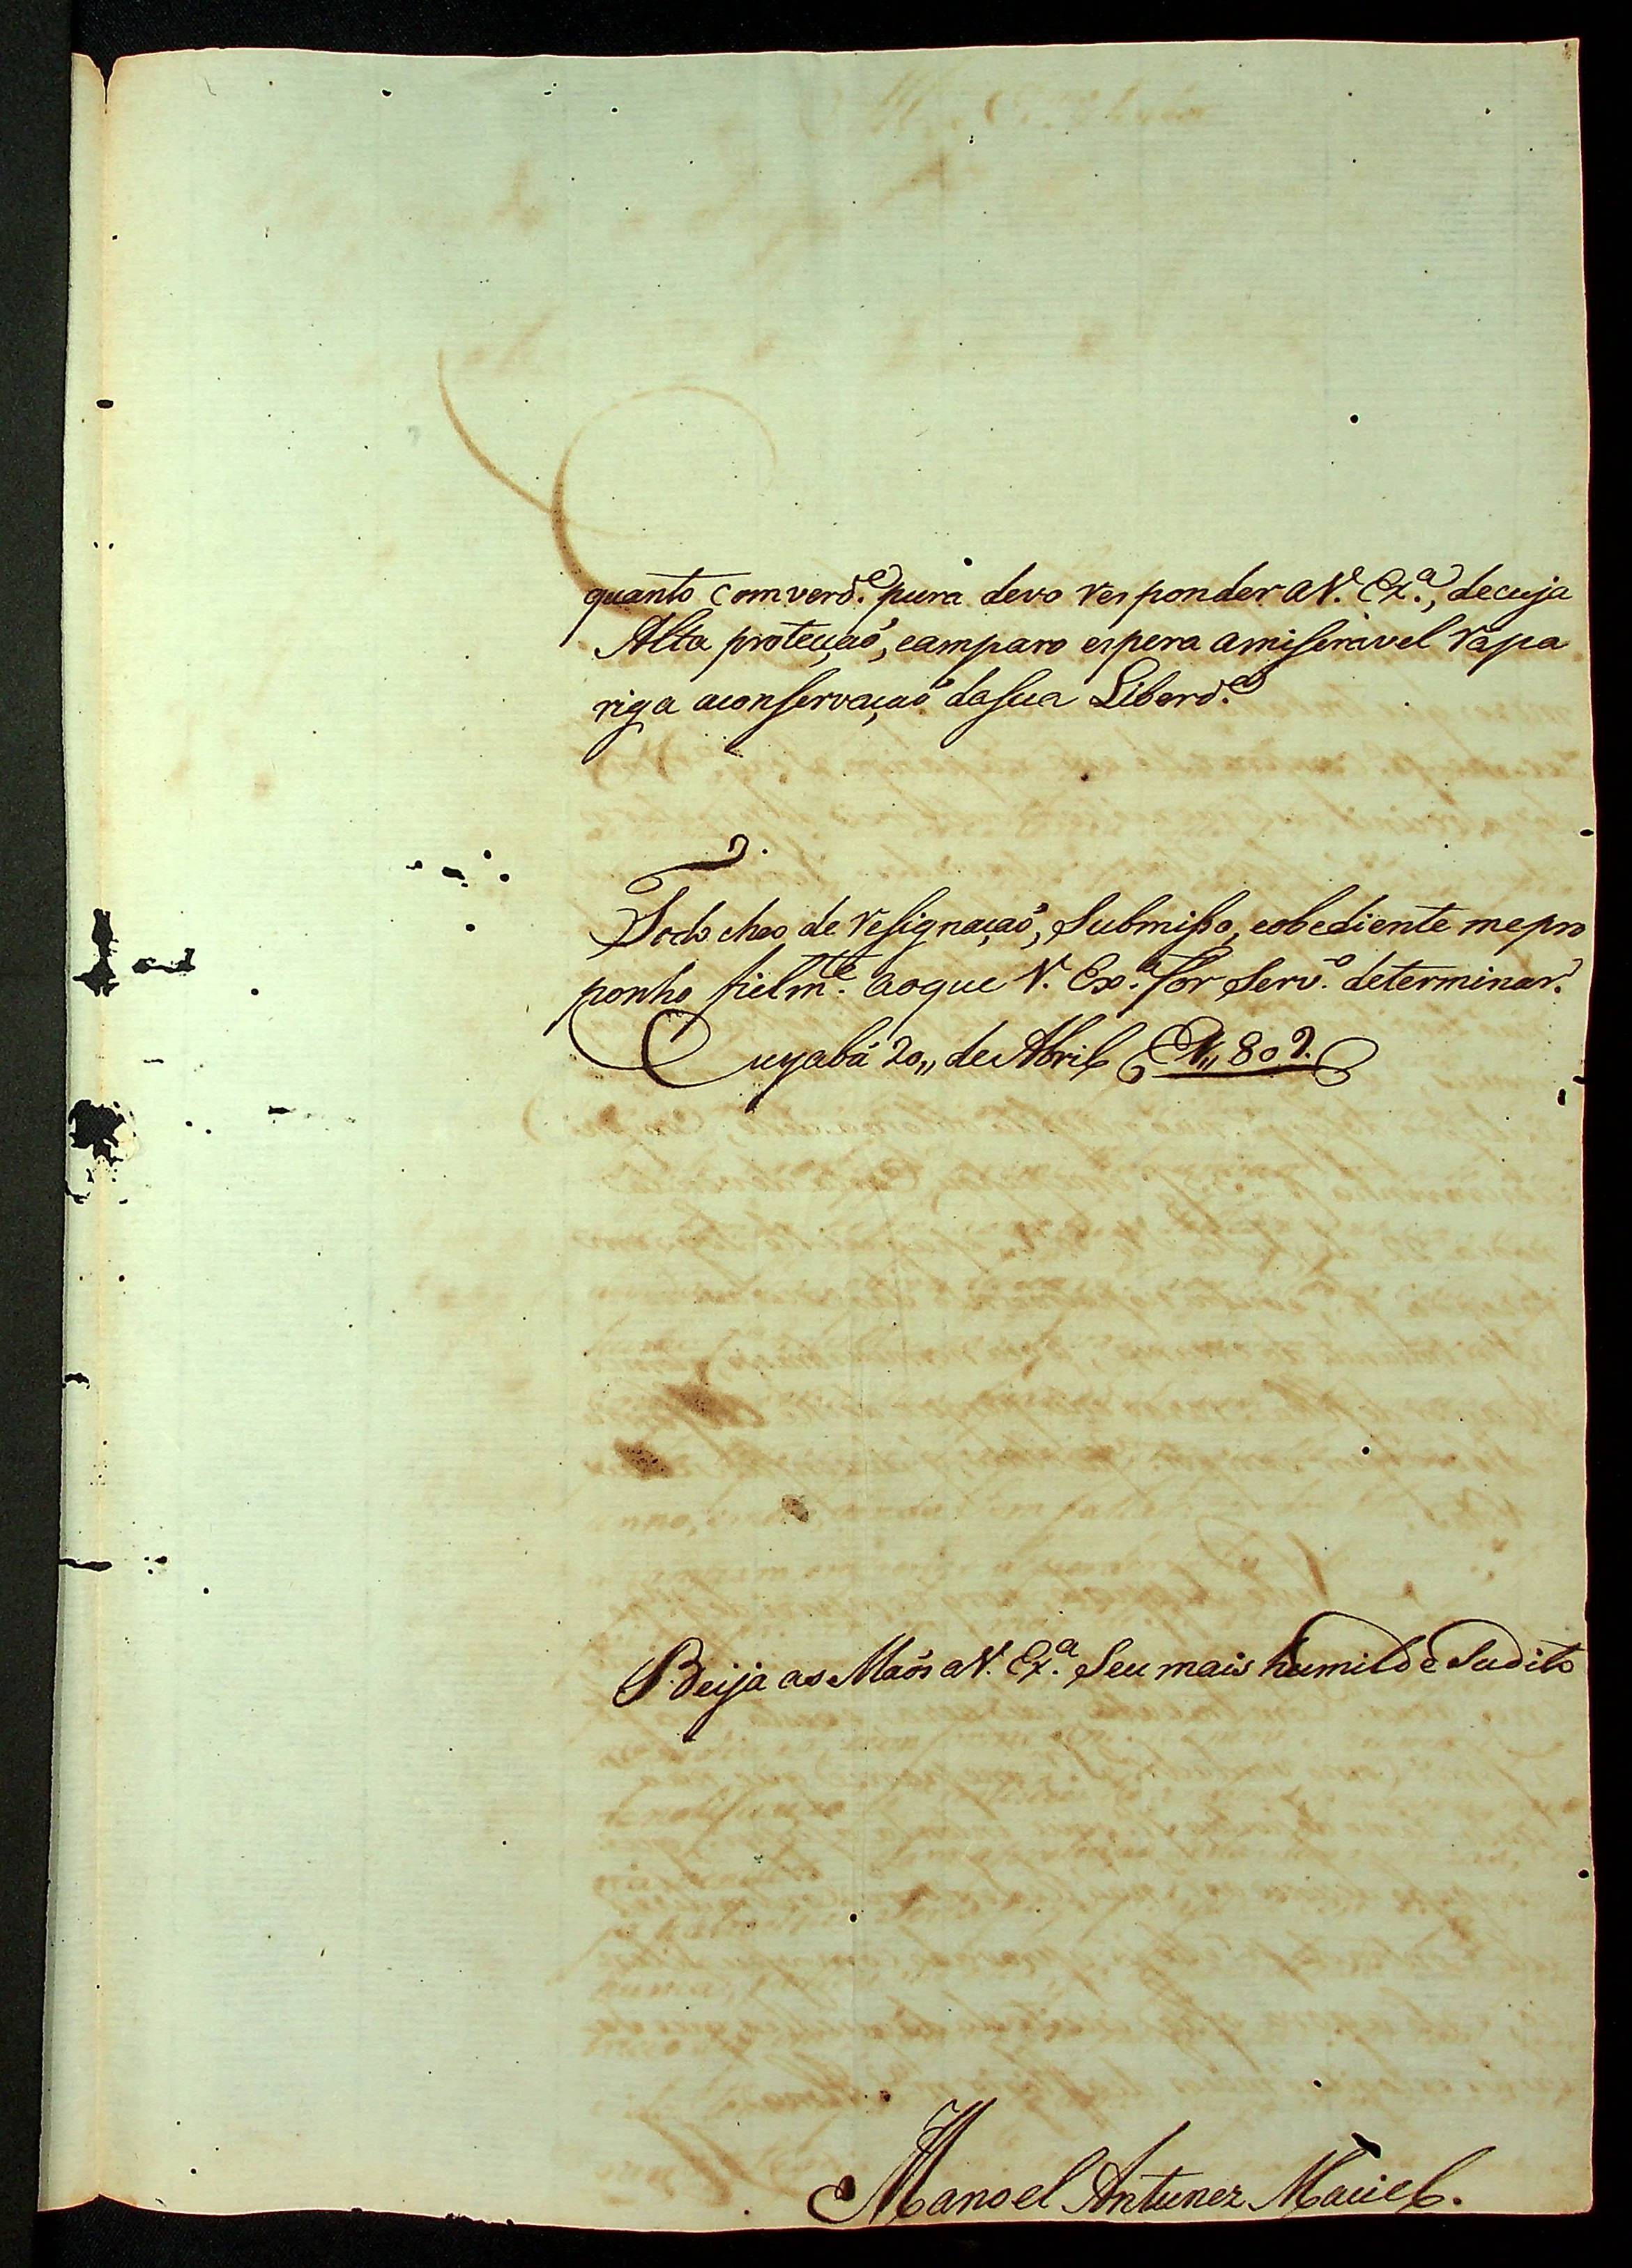 quanto comverd.e pura devo responder a V. Ex.a, decuja
Alta proteçaõ, eamparo espera amiseravel rapa
riga aconservaçaõ dasua Liberd.e
Todo cheo de resignaçaõ, Submisso, eobediente mepro
ponho fielm.te aoque V. Ex.a for Serv.o determinar.
Cuyabá 20,, de Abril
Beija as Maõs a V. Ex.a Seu mais humilde Sudito
Manoel Antunez Maciel.